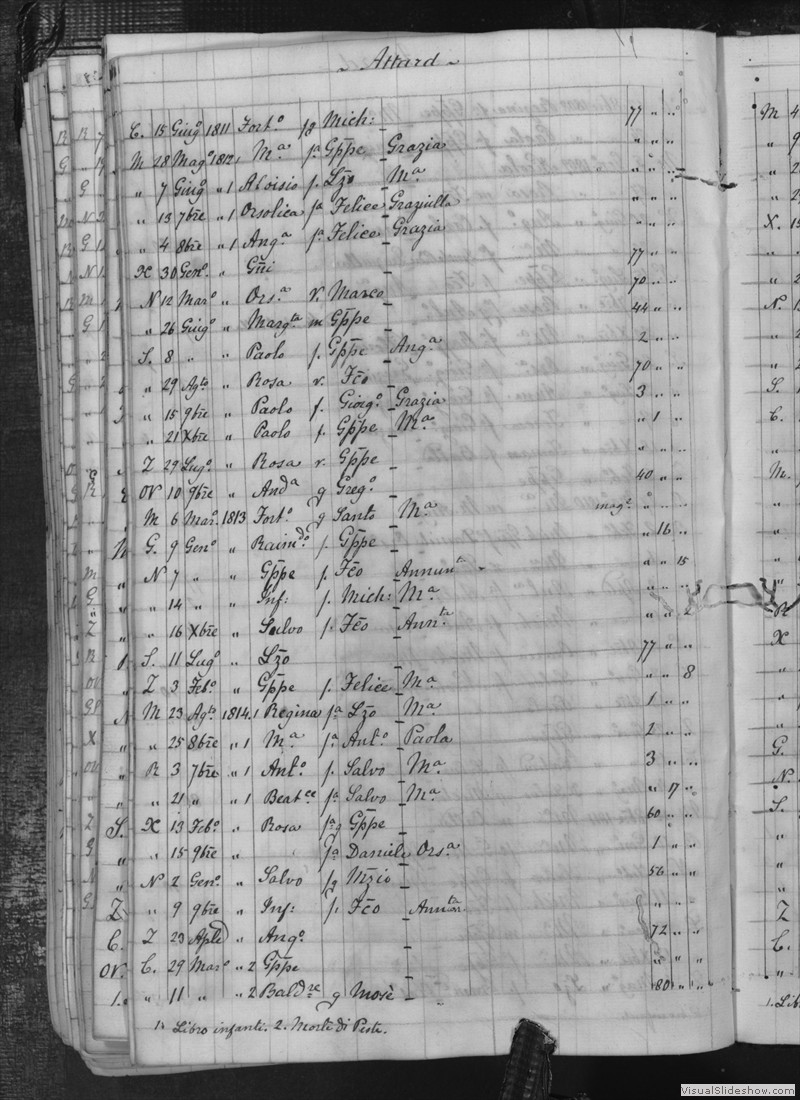 Attard
C. 15 Giugº 1811 Fortº fq Mich: 77 " "
M 28 Magº 1812 1 Mª fª Gppe Grazia " " "
" 7 Giugº " 1 Aloisio f. Lzo Mª " " "
" 13 7bre " 1 Orsolica fª Felice Graziulla
" 4 8bre " 1 Angª fª Felice Grazia
X 30 Genº " Gni 77 " "
N 12 Marº " Orsª V. Marco 70 " "
" 26 Giugº " Margta m Gppe 44 " "
S. 8 " " Paolo f. Gppe Angª 2 " "
" 29 Agto " Rosa v. Fco 70 " "
" 15 9bre " Paolo f. Giorgº Grazia 3 " "
" 21 Xbre " Paolo f. Gppe Mª " 1 "
Z 29 Lugº " Rosa v. Gppe " " "
OV 10 9bre " Andª q Gregº 40 " "
M 6 Marº 1813 Fortº q Santo Mª magº " " "
G. 9 Genº " Raimdº f. Gppe " 16 "
N 7 " " Gppe f. Fco Annunta " " 15
" 14 " " Inf: f. Mich: Mª " " "
" 16 Xbre " Salvo f. Fco Annta " " 2
S. 11 Lugº " Lzo 77 " "
Z 3 Febº " Gppe f. Felice Mª " " 8
M 23 Agto 1814 1 Regina fª Lzo Mª 1 " "
" 25 8bre " 1 Mª fª Antº Paola 2 " "
R 3 7bre " 1 Antº f. Salvo Mª 3 " "
" 21 " " 1 Beatce fª Salvo Mª " 17 "
X 13 Febº " Rosa fª q Gppe 60 " "
" 15 9bre " fª Daniele Orsª 1 " "
N 2 Genº " Salvo fq Nzio 56 " "
" 9 9bre " Inf: f. Fco Annta " " "
Z 23 Aple " Angº 72 " "
C. 29 Marº " 2 Gppe " " "
" 11 " " 2 Baldre q Mosè 80 " "
1. Libro infanti. 2. Morti di Peste.
VisualSlideshow.com